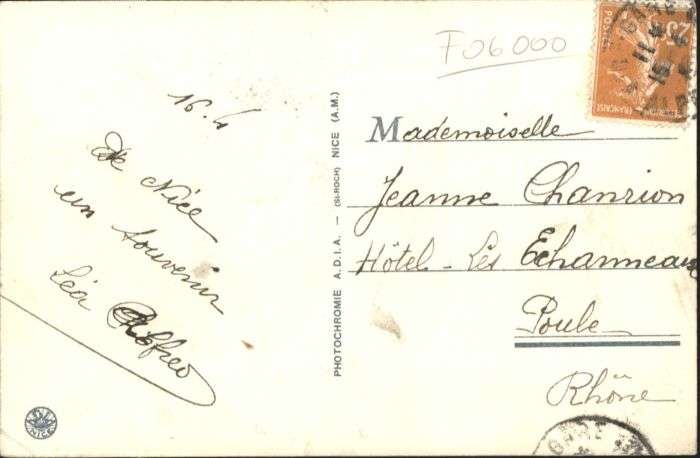 F06000
16.4
De Nice
un souvenir
Léa Alfred
PHOTOCHROMIE A.D.I.A. — (St-ROCH) NICE (A.M.)
Mademoiselle
Jeanne Chanrion
Hôtel - Les Echarmeaux
Poule
Rhône
25
POSTES
FRANÇAISE
GARE
11
15
GARE
NICE